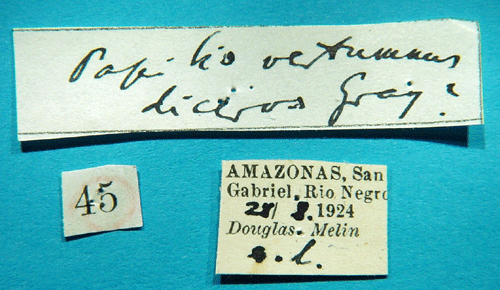 Papilio vertumnus
diceros Gray?
45
AMAZONAS, San
Gabriel, Rio Negro
28/ 8. 1924
Douglas. Melin
s. l.